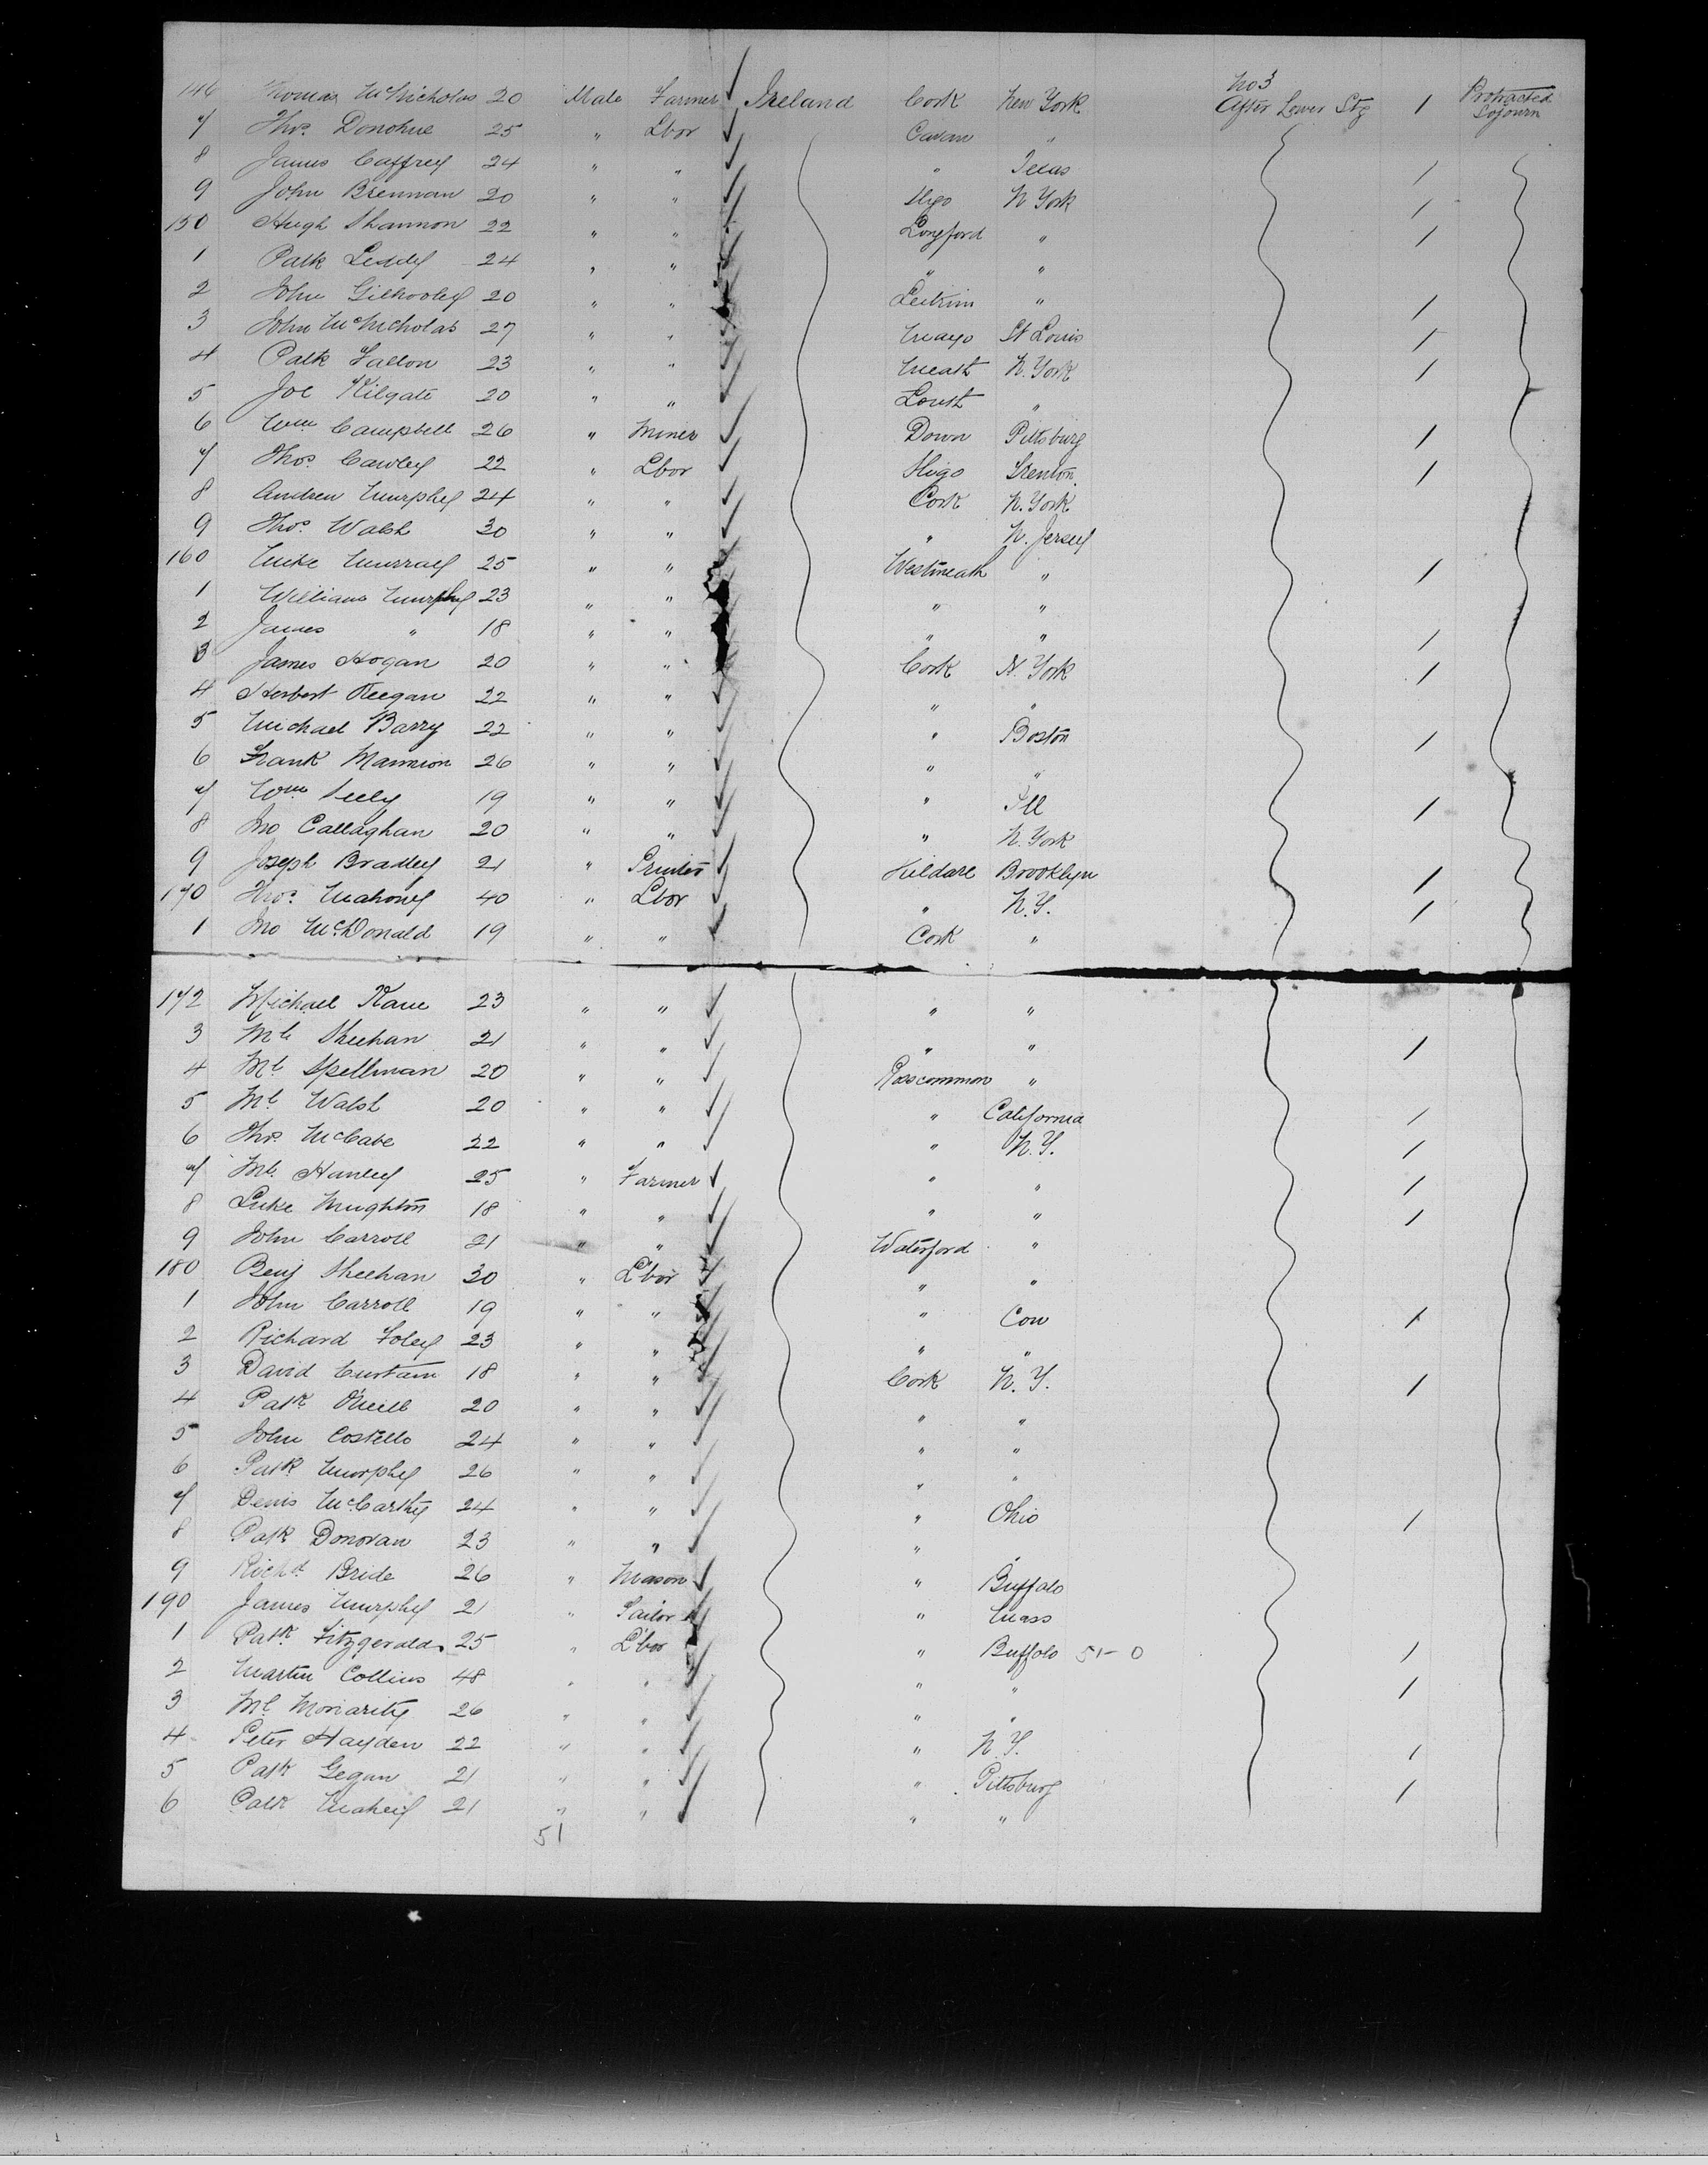 146 Thomas McNicholas 20 Male Farmer Ireland Cork New York No 3 After Lower Stg 1 Protracted Sojourn
7 Thos. Donohue 25 " Lbor Cavan "
8 James Caffrey 24 " " " Texas 1
9 John Brennan 20 " " Sligo N York 1
150 Hugh Shannon 22 " " Longford " 1
1 Patk Leddy 24 " " " "
2 John Gilhooley 20 " " Leitrim " 1
3 John McNicholas 27 " " Mayo St Louis 1
4 Patk Fallon 23 " " Meath N. York 1
5 Joe Kilgate 20 " " Louth "
6 Wm Campbell 26 " Miner Down Pittsburg 1
7 Thos. Cawley 22 " Lbor Sligo Trenton. 1
8 Andrew Murphy 24 " " Cork N. York
9 Thos. Walsh 30 " " " N. Jersey
160 Mike Murray 25 " " Westmeath " 1
1 William Murphy 23 " " " "
2 James " 18 " " " " 1
3 James Hogan 20 " " Cork N. York 1
4 Herbert Keegan 22 " " " "
5 Michael Barry 22 " " " Boston 1
6 Frank Mannion 26 " " " "
7 Wm Seely 19 " " " Ill 1
8 Jno Callaghan 20 " " " N. York
9 Joseph Bradley 21 " Printer Kildare Brooklyn 1
170 Thos. Mahony 40 " Lbor " N.Y. 1
1 Jno McDonald 19 " " Cork "
172 Michael Kane 23 " " " "
3 Ml Sheehan 21 " " " " 1
4 Ml Spellman 20 " " Roscommon "
5 Ml Walsh 20 " " " California 1
6 Thos. McCabe 22 " " " N.Y. 1
7 Ml. Hanley 25 " Farmer " " 1
8 Luke Mughton 18 " " " " 1
9 John Carroll 21 " " Waterford "
180 Benj Sheehan 30 " Lbor " "
1 John Carroll 19 " " " Con 1
2 Richard Foley 23 " " " "
3 David Curtain 18 " " Cork N.Y. 1
4 Patk O'Neill 20 " " " "
5 John Costello 24 " " " "
6 Patk Murphy 26 " " " "
7 Denis McCarthy 24 " " " Ohio 1
8 Patk Donovan 23 " " " "
9 Richd. Bride 26 " Mason " Buffalo
190 James Murphy 21 " Sailor " Mass
1 Patk. Fitzgerald 25 " Lbor " Buffalo 51-0 1
2 Martin Collins 48 " " " " 1
3 Ml Moriarity 26 " " " "
4 Peter Hayden 22 " " " N.Y. 1
5 Patk Gegan 21 " " " Pittsburg 1
6 Patk Mahey 21 " " " "
51